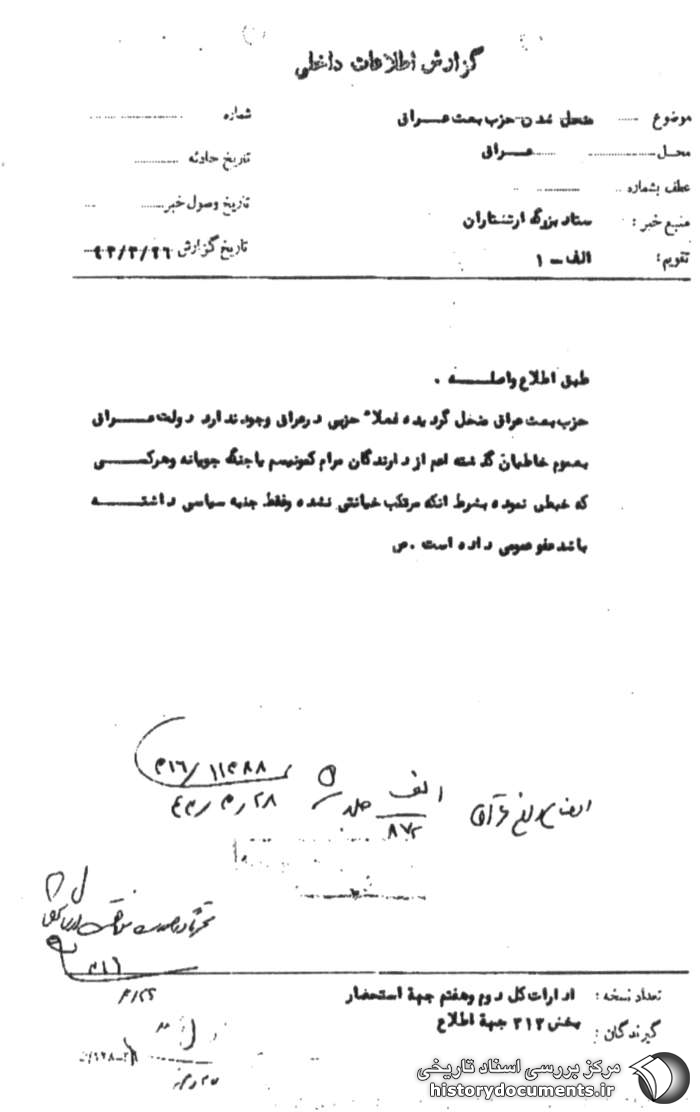 گزارش اطلاعات داخلی
موضوع منحل شدن حزب بعث عراق
شماره
محل عراق
تاریخ حادثه
عطف بشماره
تاریخ وصول خبر
منبع خبر : ستاد بزرگ ارتشتاران
تاریخ گزارش ۴۳/۳/۲۶
تقویم : الف - ۱
طبق اطلاع واصله .
حزب بعث عراق منحل گردیده فعلاً حزبی در عراق وجود ندارد دولت عراق
بعموم خاطیان گذشته اعم از دارندگان مرام کمونیسم یا جنگ جویانه و هرکسی
که خبطی نموده بشرط انکه مرتکب خیانتی نشده و فقط جنبه سیاسی داشته
باشد عفو عمومی داده است .ص
۳۱۶/۱۱۳۸۸
۲۸/۳/۴۳
الف
۸۷۲
۳۱۶
تعداد نسخه : ادارات کل دوم و هفتم جهة استحضار
گیرندگان : بخش ۳۱۲ جهة اطلاع
مرکز بررسی اسناد تاریخی
historydocuments.ir